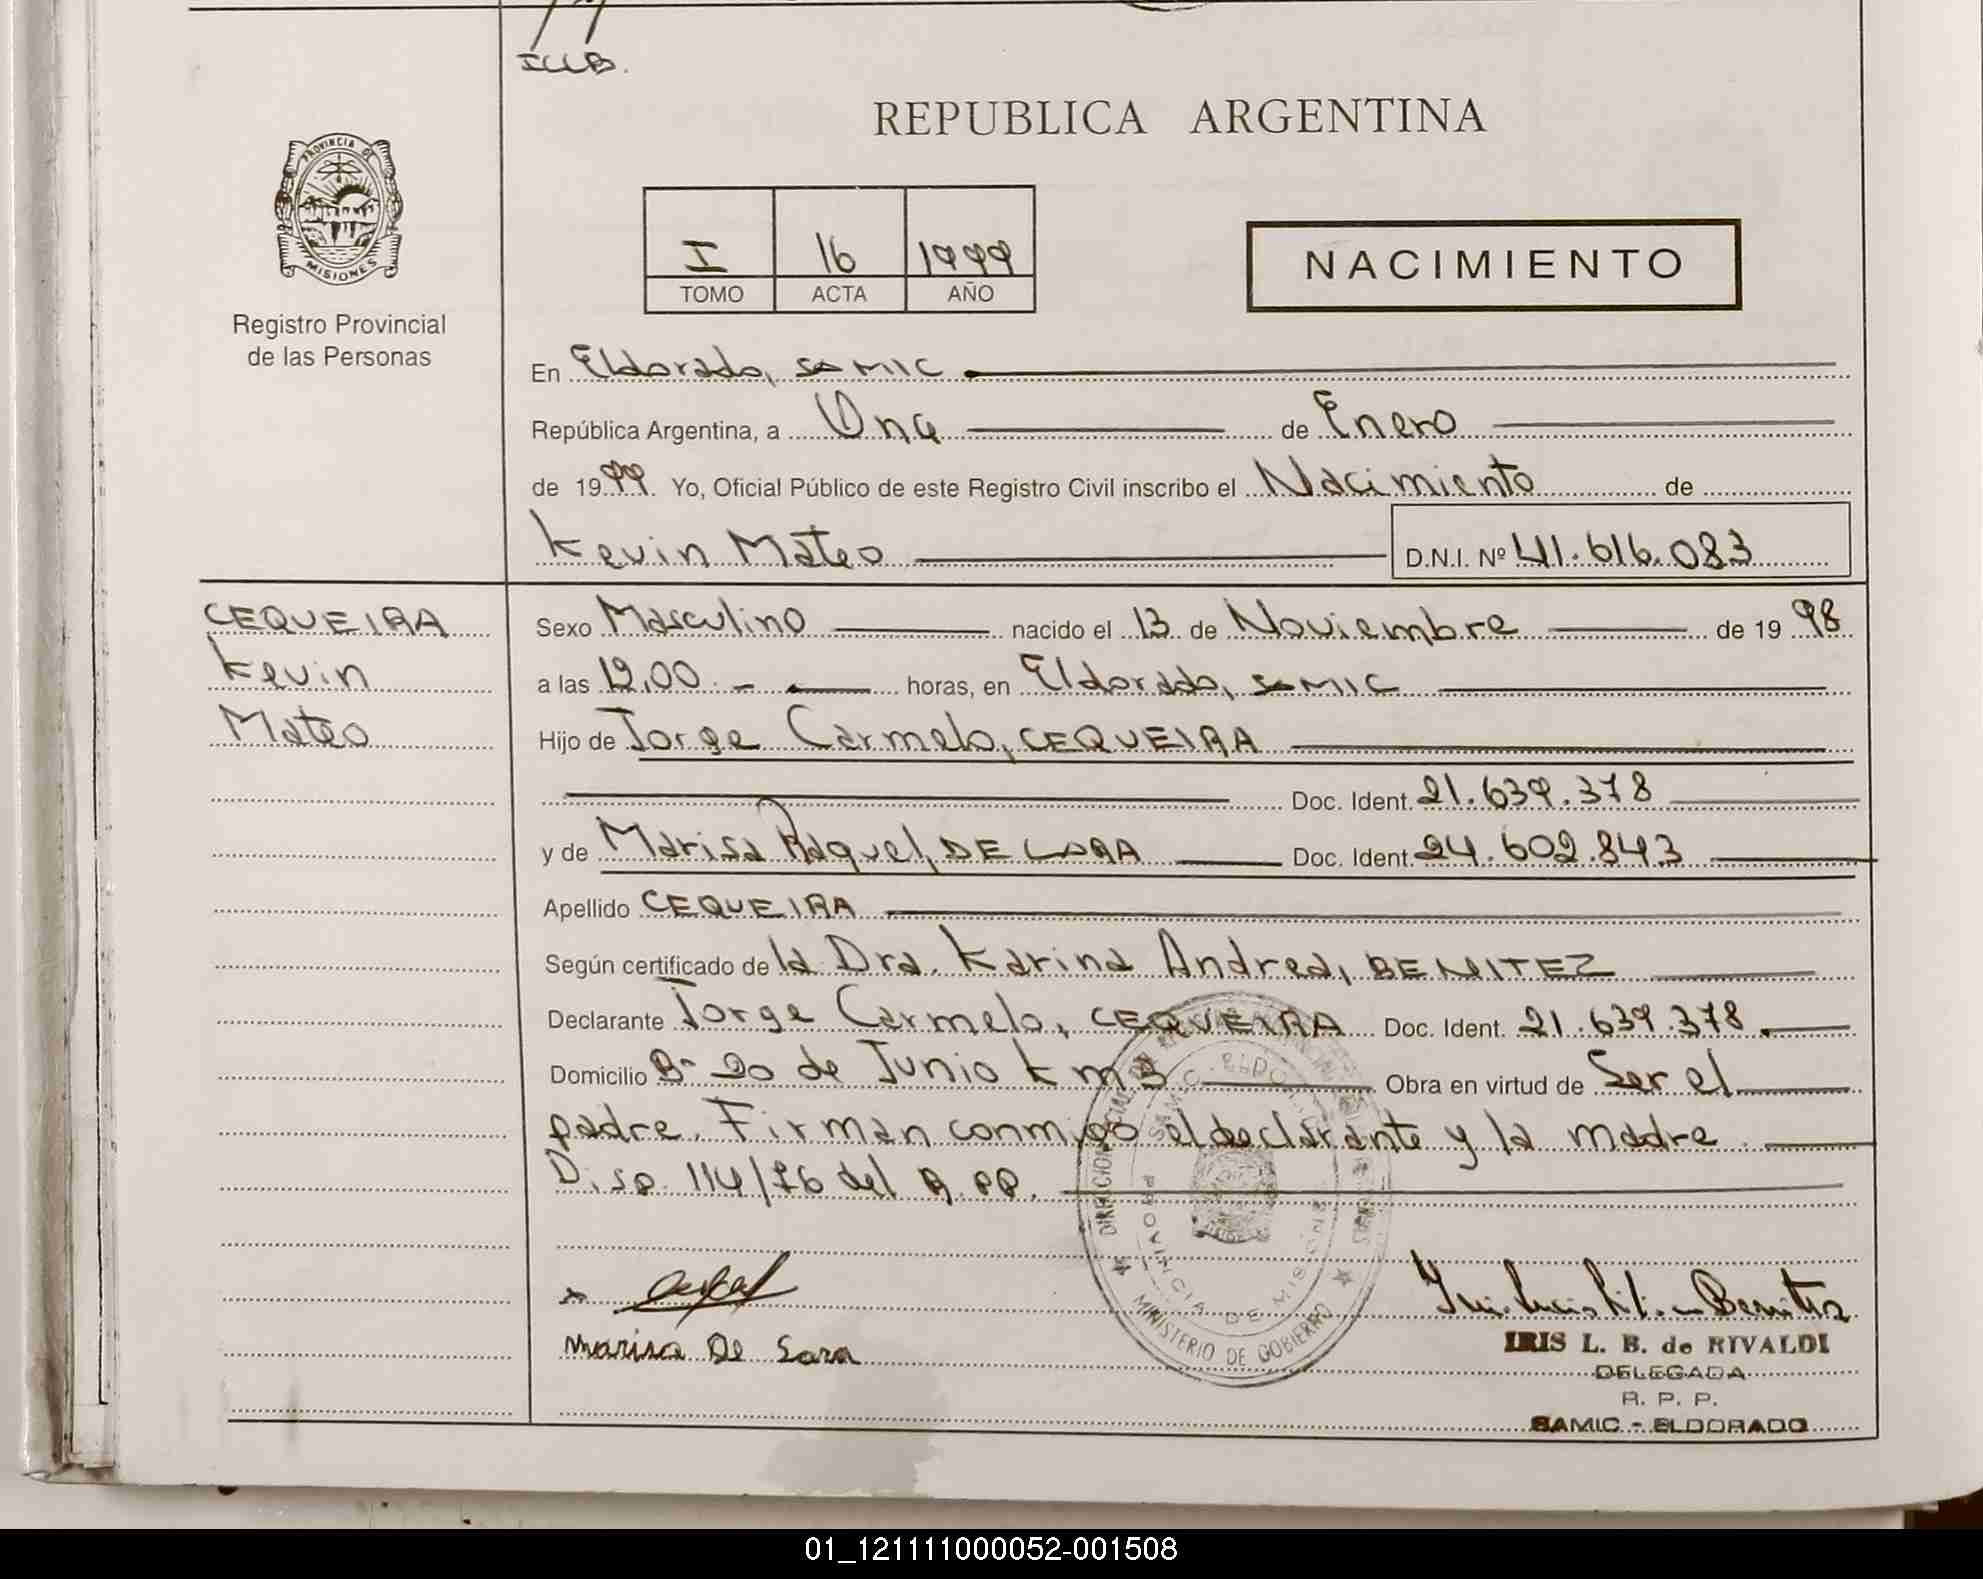 ILLB.
REPUBLICA ARGENTINA
PROVINCIA DE
MISIONES
Registro Provincial
de las Personas
I 16 1999
TOMO ACTA AÑO
NACIMIENTO
En Eldorado, SAMIC
República Argentina, a Once de Enero
de 1999. Yo, Oficial Público de este Registro Civil inscribo el Nacimiento de
Kevin Mateo D.N.I. Nº 41.616.083
CEQUEIRA
Kevin
Mateo
Sexo Masculino nacido el 13 de Noviembre de 1998
a las 12,00.- horas, en Eldorado, SAMIC
Hijo de Jorge Carmelo, CEQUEIRA
Doc. Ident. 21.639.378
y de Marisa Raquel, DE LARA Doc. Ident. 24.602.843
Apellido CEQUEIRA
Según certificado de la Dra. Karina Andrea, BENITEZ
Declarante Jorge Carmelo, CEQUEIRA Doc. Ident. 21.639.378.
Domicilio Bº 20 de Junio Km 3 Obra en virtud de Ser el
padre. Firman conmigo el declarante y la madre.
Disp. 114/76 del R.PP.
PROVINCIA DE MISIONES
MINISTERIO DE GOBIERNO
IRIS L. B. de RIVALDI
Marisa De Lara
DELEGADA
R. P. P.
SAMIC - ELDORADO
01_121111000052-001508